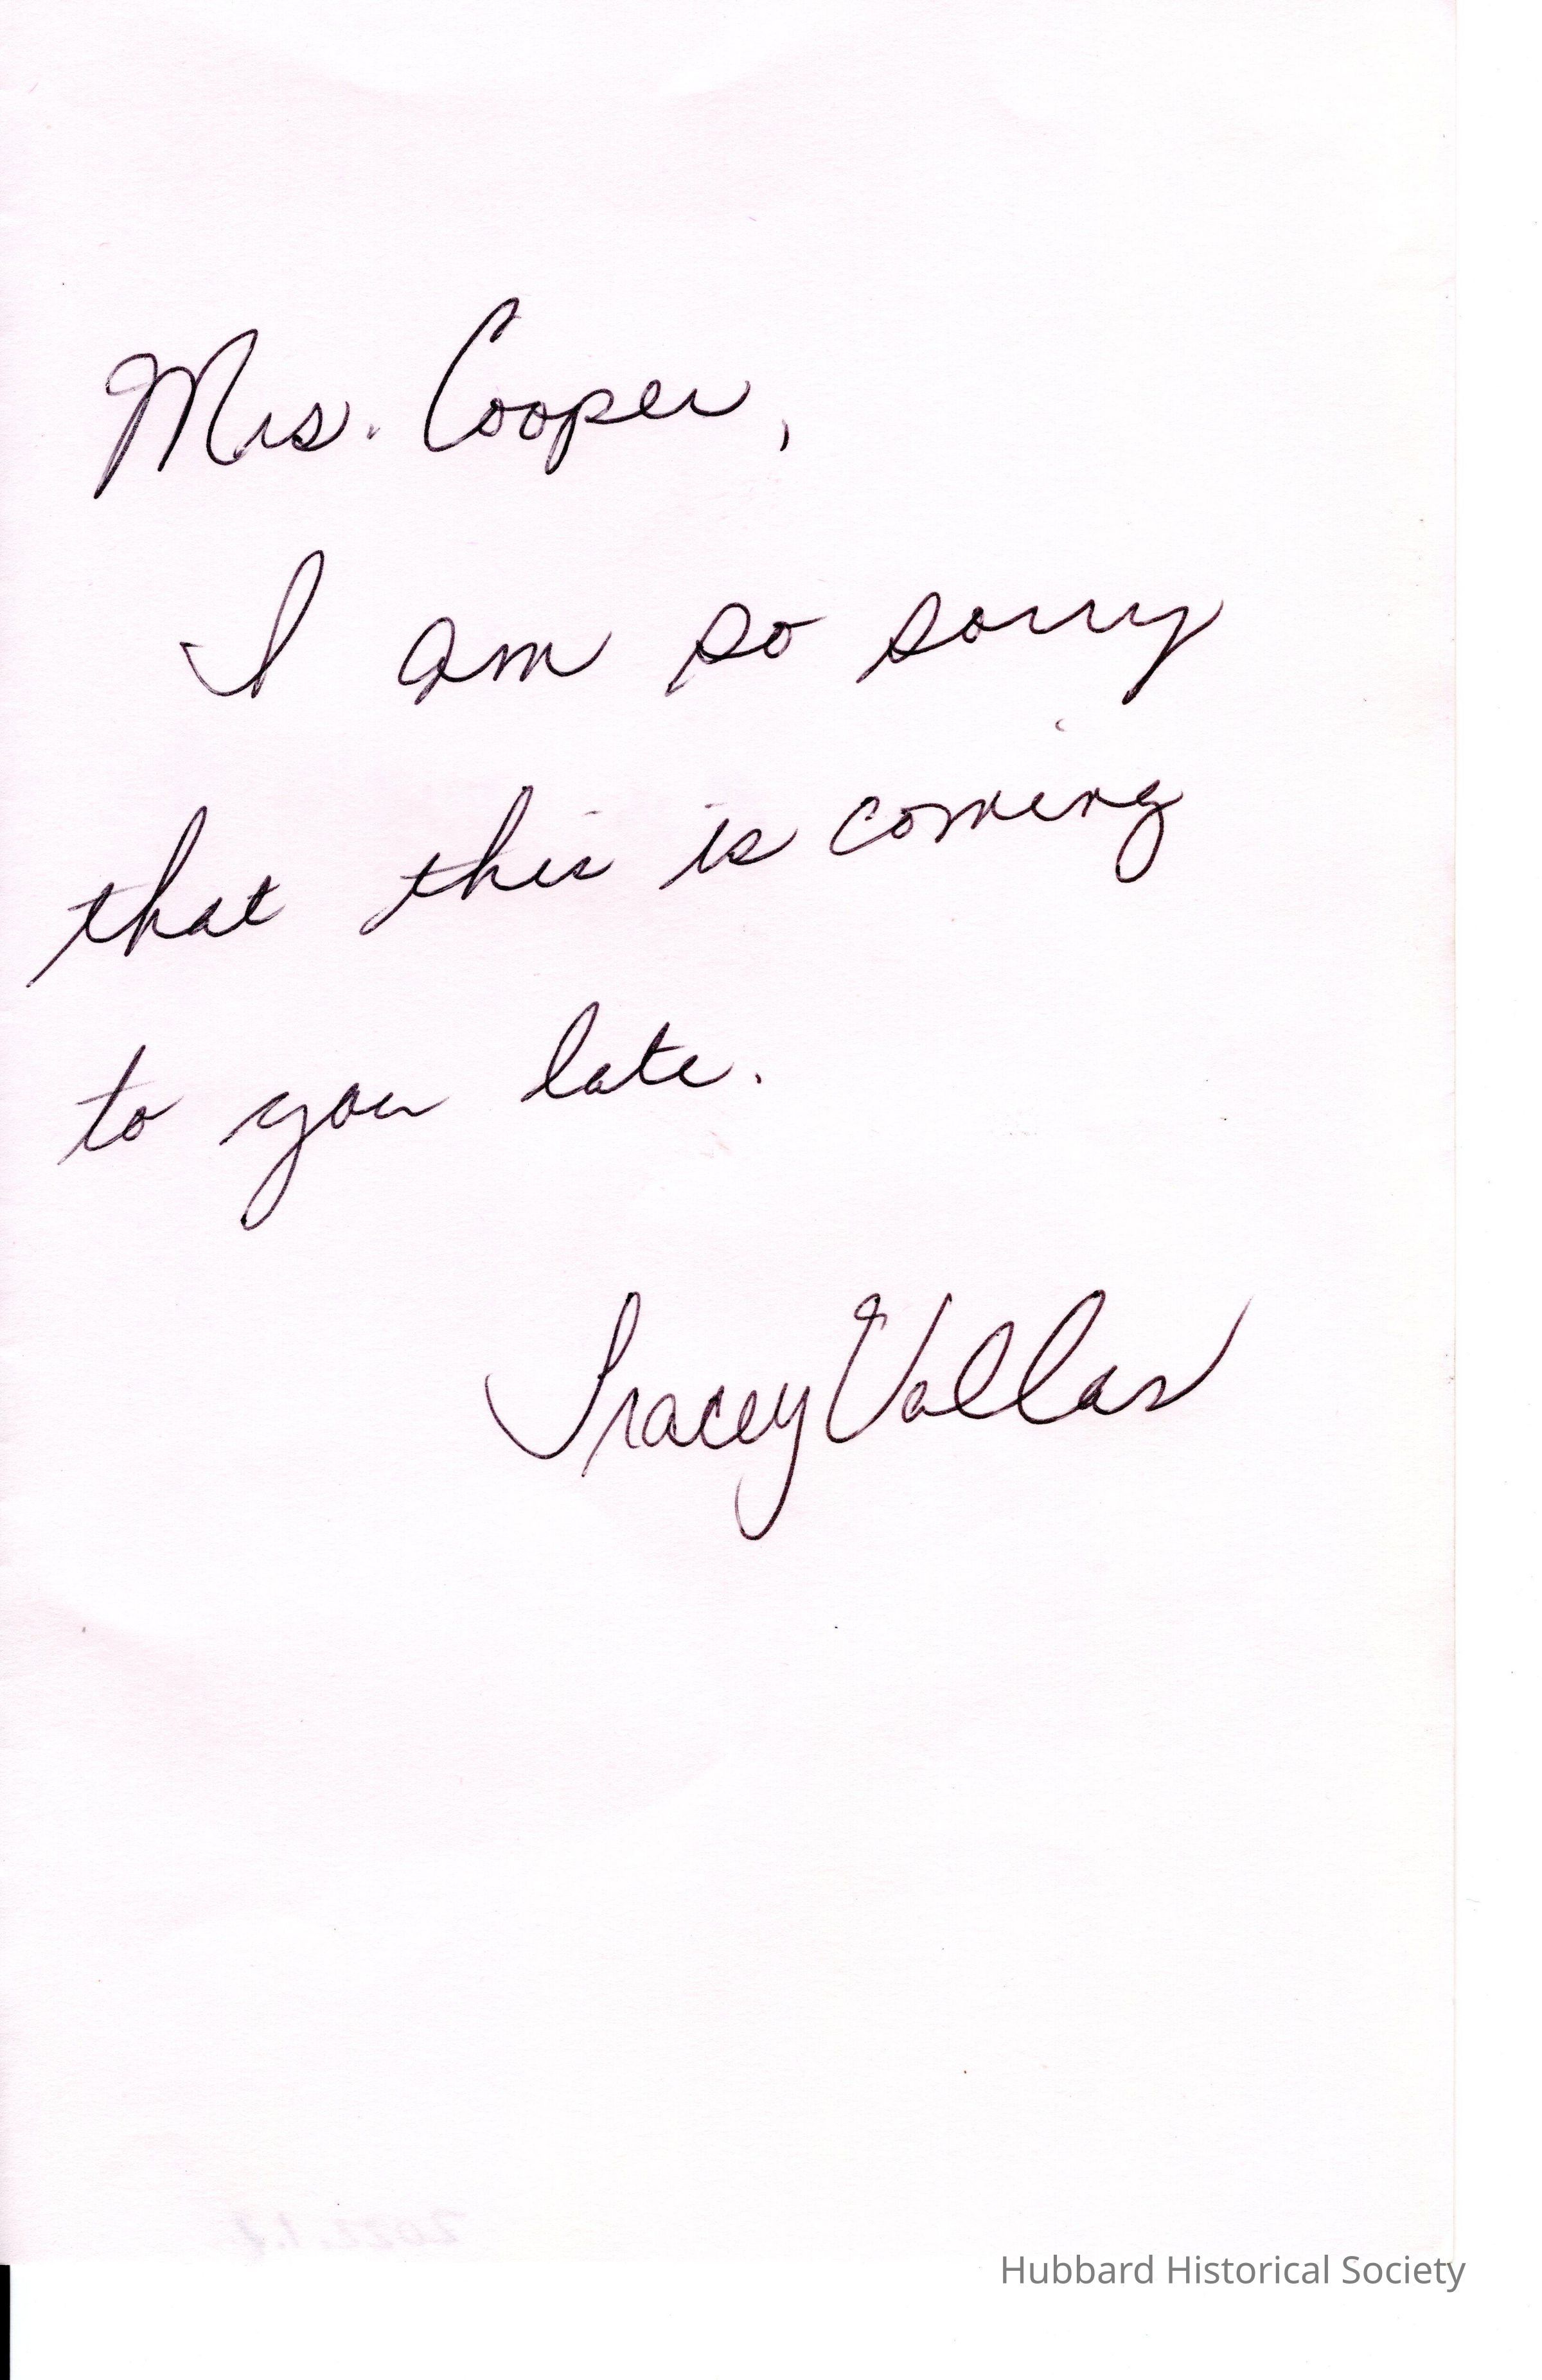 Mrs. Cooper,
I am so sorry
that this is coming
to you late.
Tracey Vallas
Hubbard Historical Society